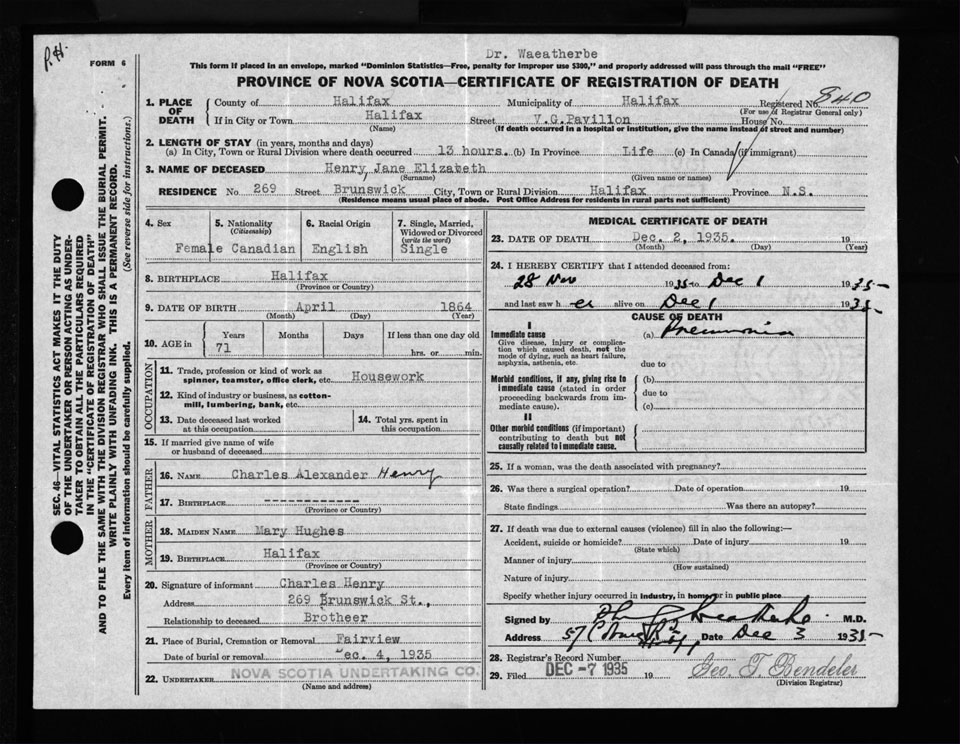 P.H.
FORM 6
Dr. Waeatherbe
This form if placed in an envelope, marked "Dominion Statistics—Free, penalty for improper use $300," and properly addressed will pass through the mail "FREE"
PROVINCE OF NOVA SCOTIA—CERTIFICATE OF REGISTRATION OF DEATH
SEC. 46—VITAL STATISTICS ACT MAKES IT THE DUTY
OF THE UNDERTAKER OR PERSON ACTING AS UNDER-
TAKER TO OBTAIN ALL THE PARTICULARS REQUIRED
IN THE "CERTIFICATE OF REGISTRATION OF DEATH"
AND TO FILE THE SAME WITH THE DIVISION REGISTRAR WHO SHALL ISSUE THE BURIAL PERMIT.
WRITE PLAINLY WITH UNFADING INK. THIS IS A PERMANENT RECORD.
Every item of information should be carefully supplied. (See reverse side for instructions.)
1. PLACE OF DEATH County of Halifax Municipality of Halifax Registered No. 840
(For use of Registrar General only)
If in City or Town Halifax Street V.G.Pavilion House No.
(Name) (If death occurred in a hospital or institution, give the name instead of street and number)
2. LENGTH OF STAY (in years, months and days)
(a) In City, Town or Rural Division where death occurred 13 hours. (b) In Province Life (c) In Canada (if immigrant)
3. NAME OF DECEASED Henry, Jane Elizabeth
(Surname) (Given name or names)
RESIDENCE No 269 Street Brunswick City, Town or Rural Division Halifax Province N.S.
(Residence means usual place of abode. Post Office Address for residents in rural parts not sufficient)
4. Sex 5. Nationality (Citizenship) 6. Racial Origin 7. Single, Married, Widowed or Divorced (write the word)
Female Canadian English Single
8. BIRTHPLACE Halifax
(Province or Country)
9. DATE OF BIRTH April 1864
(Month) (Day) (Year)
10. AGE in Years Months Days If less than one day old
71 hrs. or min.
OCCUPATION
11. Trade, profession or kind of work as spinner, teamster, office clerk, etc. Housework
12. Kind of industry or business, as cotton-mill, lumbering, bank, etc.
13. Date deceased last worked at this occupation 14. Total yrs. spent in this occupation
15. If married give name of wife or husband of deceased
FATHER
16. NAME Charles Alexander Henry
17. BIRTHPLACE -------------
(Province or Country)
MOTHER
18. MAIDEN NAME Mary Hughes
19. BIRTHPLACE Halifax
(Province or Country)
20. Signature of informant Charles Henry
Address 269 Brunswick St.,
Relationship to deceased Brotheer
21. Place of Burial, Cremation or Removal Fairview
Date of burial or removal ec. 4, 1935
22. UNDERTAKER NOVA SCOTIA UNDERTAKING CO.
(Name and address)
MEDICAL CERTIFICATE OF DEATH
23. DATE OF DEATH Dec. 2, 1935. 19
(Month) (Day) (Year)
24. I HEREBY CERTIFY that I attended deceased from:
28 Nov 1935 to Dec 1 1935
and last saw h er alive on Dec 1 1935
CAUSE OF DEATH
I
Immediate cause (a) Pneumonia
Give disease, injury or complication which caused death, not the mode of dying, such as heart failure, asphyxia, asthenia, etc.
due to
Morbid conditions, if any, giving rise to immediate cause (stated in order proceeding backwards from immediate cause).
(b)
due to
(c)
II
Other morbid conditions (if important) contributing to death but not causally related to immediate cause.
25. If a woman, was the death associated with pregnancy?
26. Was there a surgical operation? Date of operation 19
State findings Was there an autopsy?
27. If death was due to external causes (violence) fill in also the following:—
Accident, suicide or homicide? Date of injury 19
(State which)
Manner of injury
(How sustained)
Nature of injury
Specify whether injury occurred in industry, in home, or in public place
Signed by M.D.
Address 57 Date Dec 3 1935
28. Registrar's Record Number
29. Filed DEC -7 1935 19 Geo. T. Bendeler
(Division Registrar)